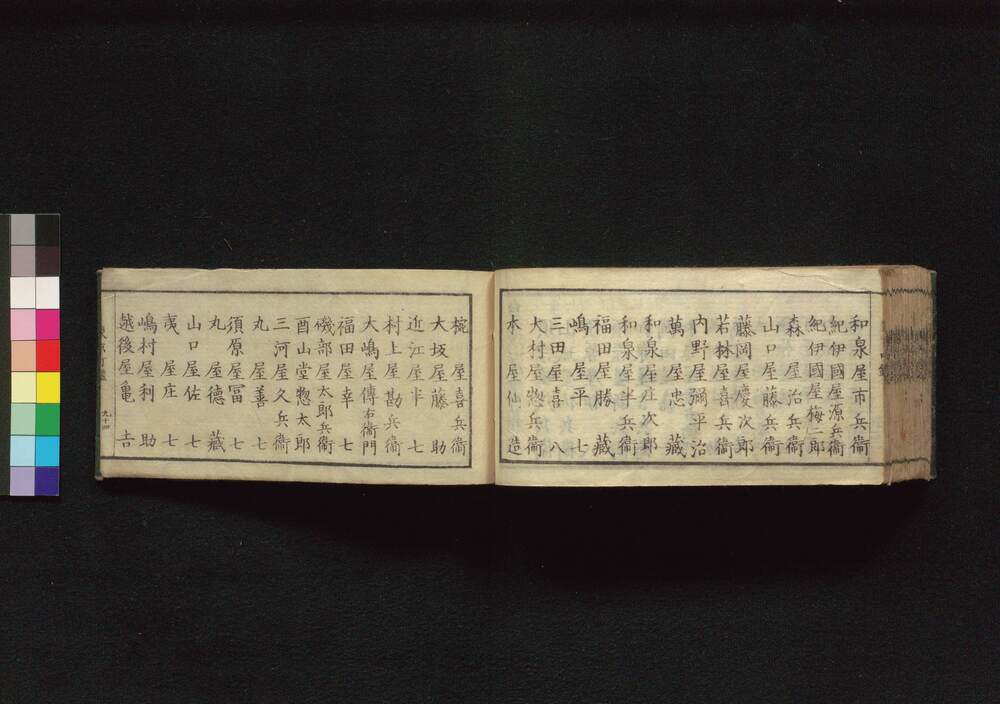 和泉屋市兵衞
紀伊國屋源兵衞
紀伊國屋梅二郎
森屋治兵衞
山口屋藤兵衞
藤岡屋慶次郎
若林屋喜兵衞
内野屋彌平治
萬屋忠藏
和泉屋庄次郎
和泉屋半兵衞
福田屋勝藏
嶋屋平七
三田屋喜八
大村屋惣兵衞
本屋仙造
椀屋喜兵衞
大坂屋藤助
近江屋半七
村上屋勘兵衞
大嶋屋傳右衞門
福田屋幸七
磯部屋太郎兵衞
酉山堂惣太郎
三河屋久兵衞
丸屋善七
須原屋冨七
丸屋德藏
山口屋佐七
夷屋庄七
嶋村屋利助
越後屋亀吉
九十四